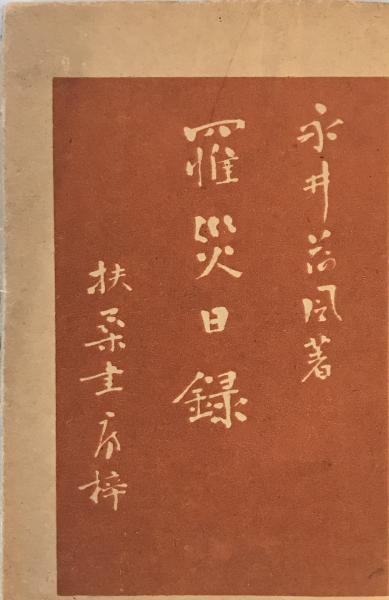 永井荷风著
罹災日録
扶桒書房梓